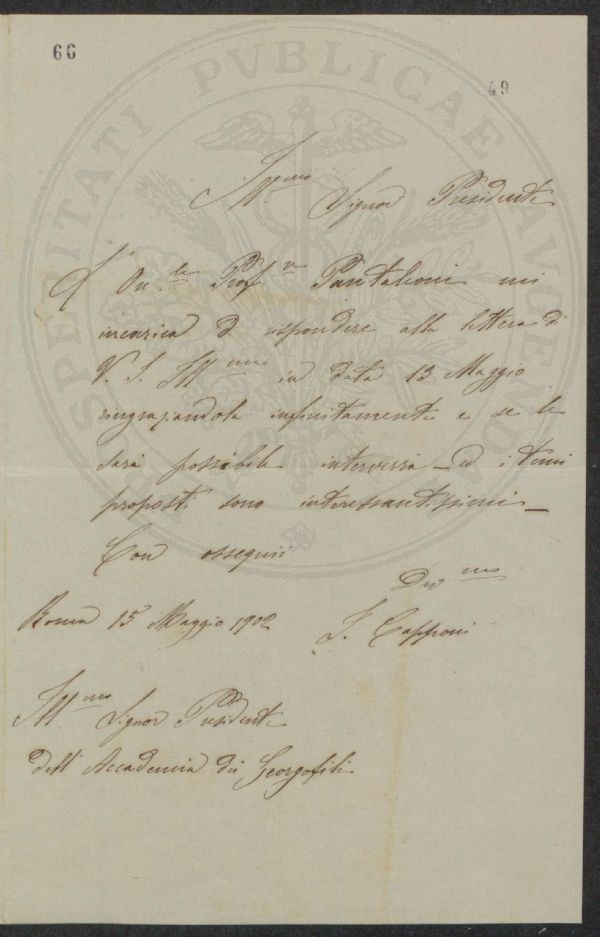 66
49
PROSPERITATI PVBLICAE AVGENDAE
Ill.mo Signor Presidente
L'On.le Prof.r Pantaleoni mi
incarica di rispondere alla lettera di
V. S. Ill.ma in data 13 Maggio
ringraziandola infinitamente e se le
sarà possibile interverrà _ ed i temi
proposti sono interessantissimi _
Con ossequi
Dev.mo
Roma 15 Maggio 1902
Capponi
Ill.mo Signor Presidente
dell'Accademia dei Georgofili